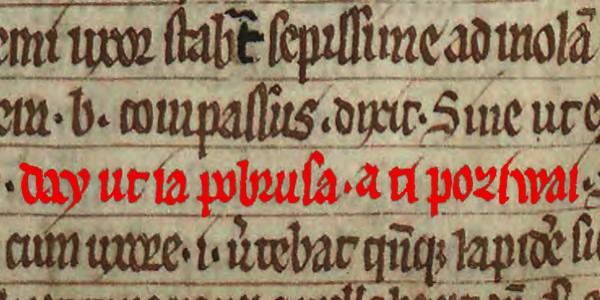 emi uxor stabat sepissime ad molā
em · b · compassus · dixit · Sine ut e
· day ut ia pobrusa · a ti poziwai ·
cum uxore · i · ūtebat qn̄q; lapidē si